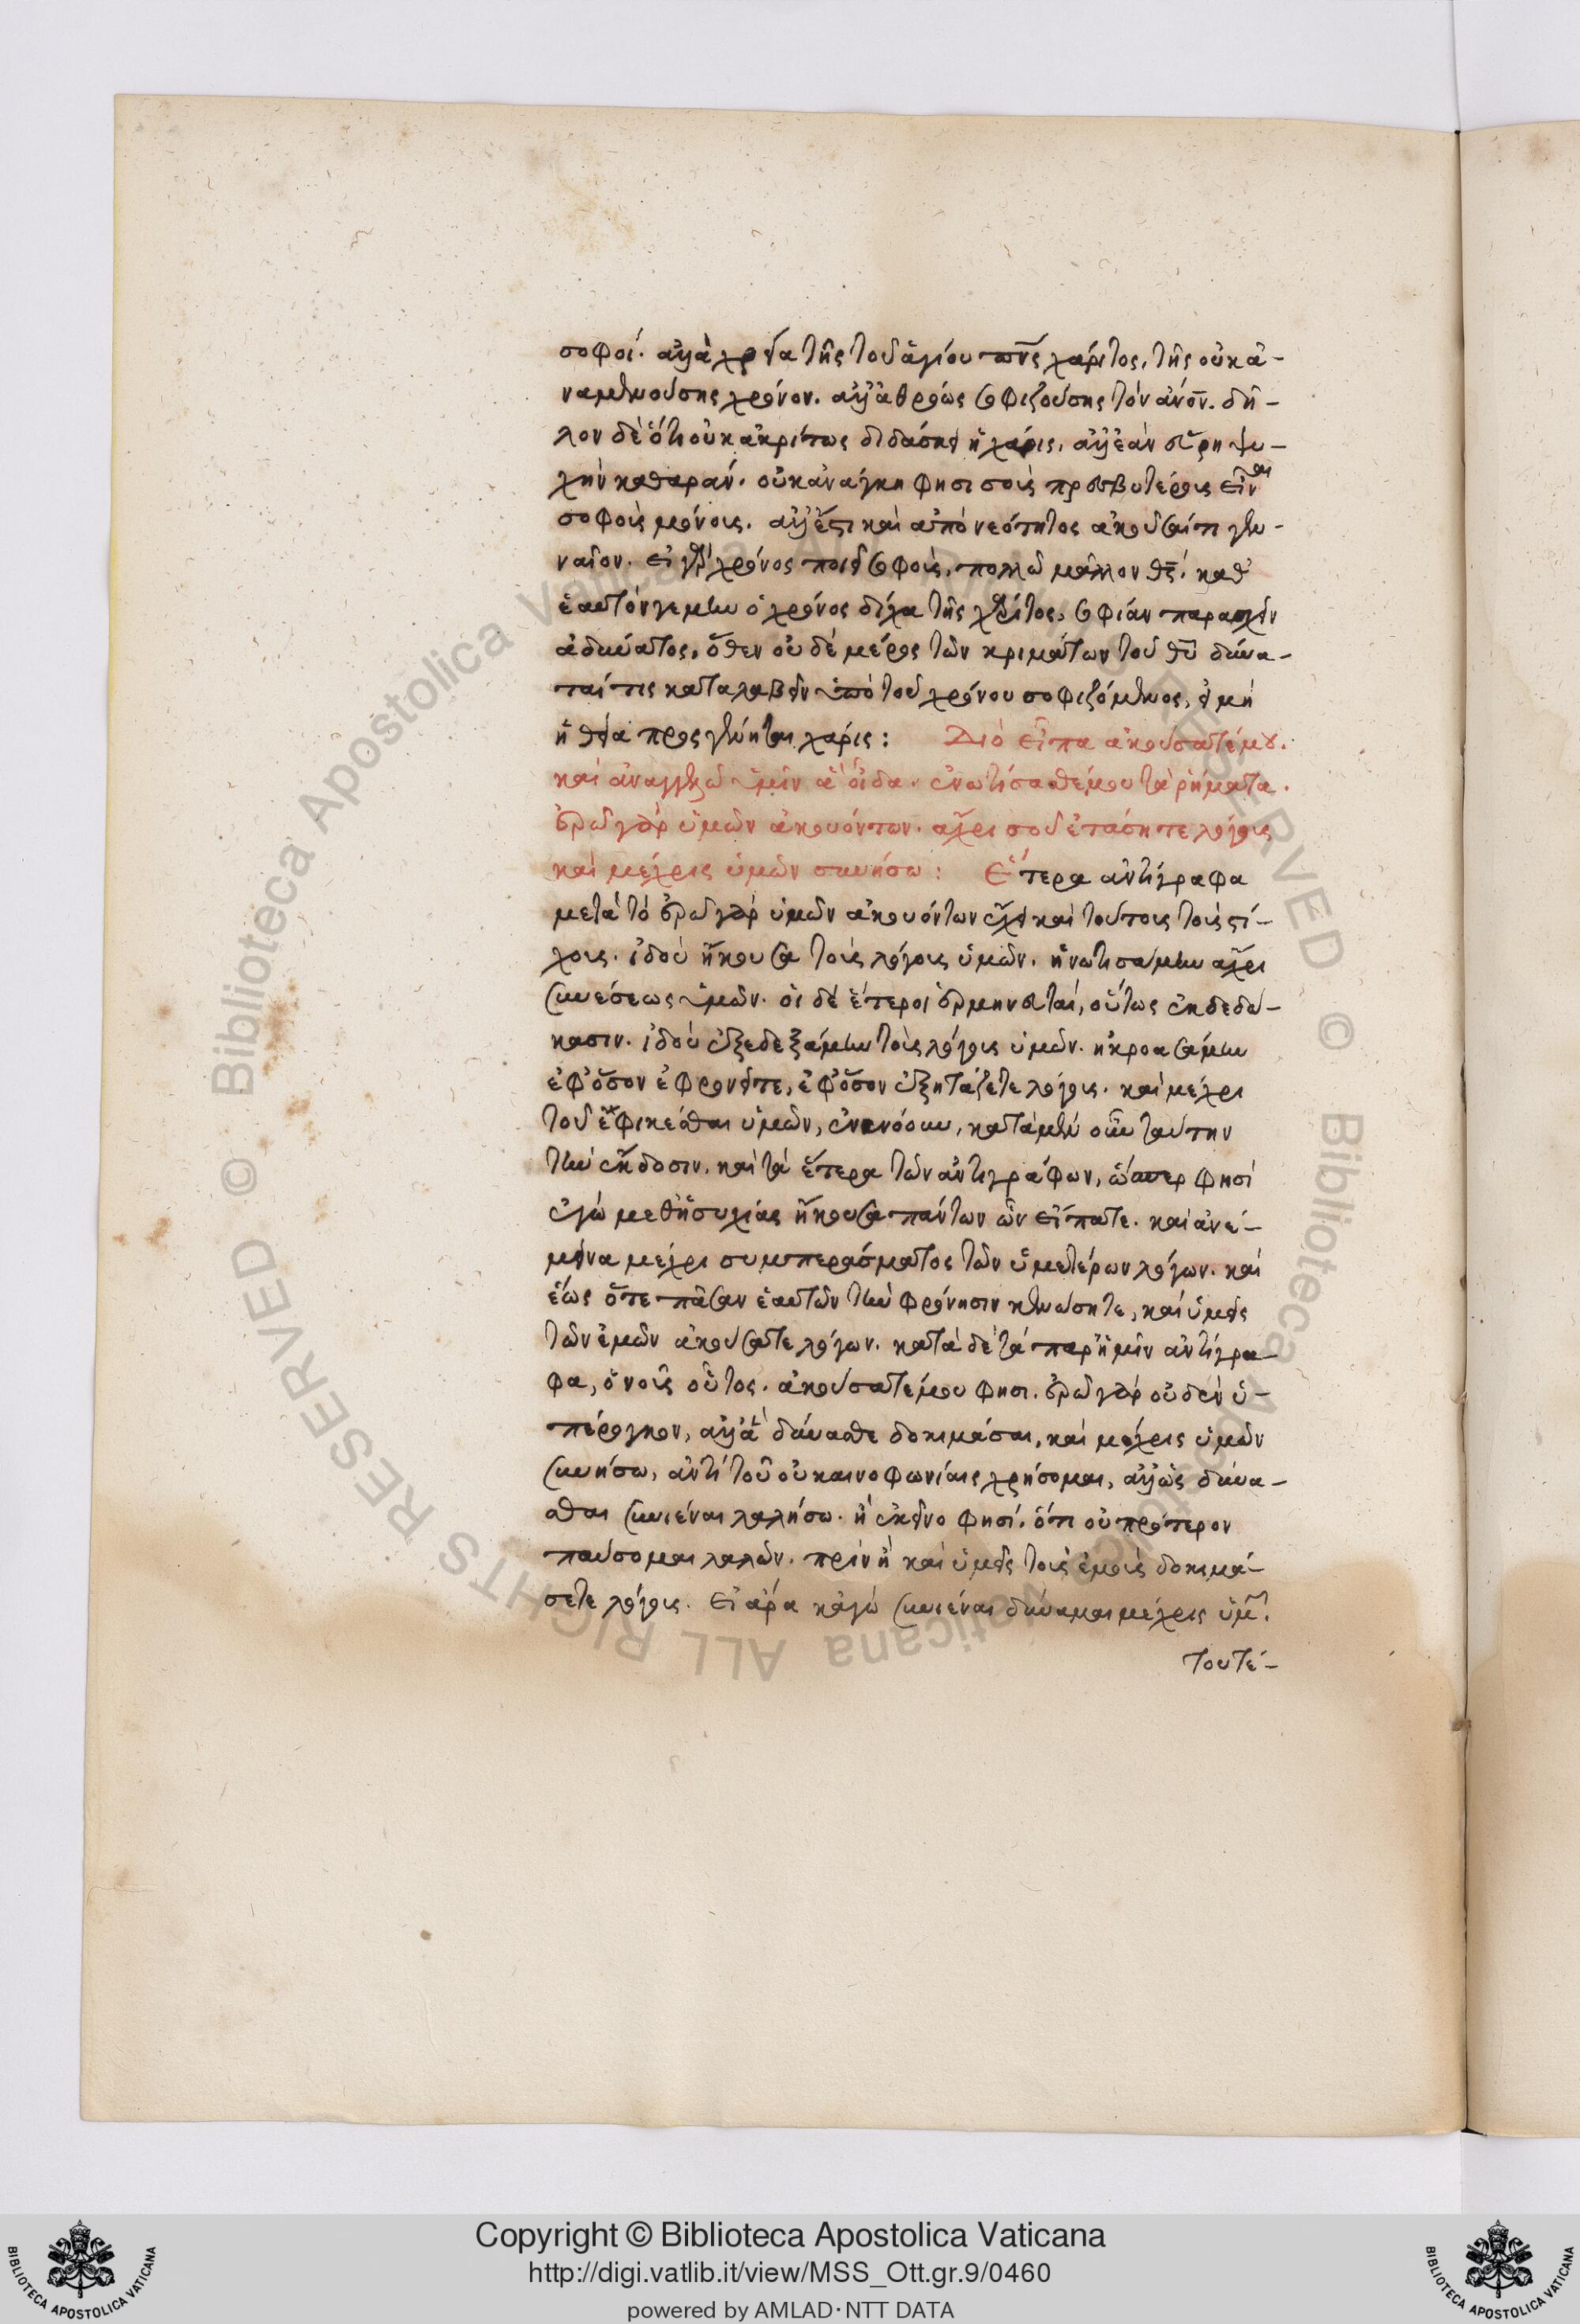 σοφοί. ἀλλὰ χρεία τῆς τοῦ ἁγίου πν̅ς χάριτος, τῆς οὐκ ἀ-
ναμενούσης χρόνον. ἀλλ' ἀθρόως σοφιζούσης τὸν ἀν̅ον. δῆ-
λον δὲ ὅτι οὐκ ἀκρίτως διδάσκει ἡ χάρις, ἀλλ' ἐὰν εὕρη ψυ-
χὴν καθαράν. οὐκ ἀνάγκη φησι τοὺς πρεσβυτέρους εἶναι
σοφοὺς μόνους. ἀλλ' ἔστι καὶ ἀπὸ νεότητος ἀκοῦσαί τι γεν-
ναῖον. εἰ γὰρ χρόνος ποιεῖ σοφοὺς, πολλῶ μᾶλλον θ̅ς. καθ'
ἑαυτόν γε μὲν ὁ χρόνος δίχα τῆς χάριτος, σοφίαν παρασχεῖν
ἀδύνατος, ὅθεν οὐδὲ μέρος τῶν κριμάτων τοῦ θ̅υ δύνα-
ταί τις καταλαβεῖν ὑπὸ τοῦ χρόνου σοφιζόμενος, εἰ μὴ
ἡ θεία προσγένηται χάρις: Διὸ εἶπα ἀκούσατέ μου.
καὶ ἀναγγελῶ ὑμῖν ἃ οἶδα. ἐνωτίσασθέ μου τὰ ῥήματα.
ἐρῶ γὰρ ὑμῶν ἀκουόντων. ἄχρις οὗ ἐτάσητε λόγους
καὶ μέχρις ὑμῶν συνήσω: Ἕτερα ἀντίγραφα
μετὰ τὸ ἐρῶ γὰρ ὑμῶν ἀκουόντων ἔχει καὶ τούτους τοὺς στί-
χους. ἰδοὺ ἤκουσα τοὺς λόγους ὑμῶν. ἠνωτισάμην ἄχρι
συνέσεως ὑμῶν. οἱ δὲ ἕτεροι ἑρμηνευταί, οὕτως ἐκδεδώ-
κασιν. ἰδοὺ ἐξεδεξάμην τοὺς λόγους ὑμῶν. ἠκροασάμην
ἐφ' ὅσον ἐφρονεῖτε, ἐφ' ὅσον ἐξητάζετε λόγους. καὶ μέχρι
τοῦ ἐφικέσθαι ὑμῶν, ἐνενόουν, κατὰ μὲν οὖν ταύτην
τὴν ἔκδοσιν. καὶ τὰ ἕτερα τῶν ἀντιγράφων, ὥσπερ φησὶ
ἐγὼ μεθ' ἡσυχίας ἤκουσα πάντων ὧν εἴπατε. καὶ ἀνέ-
μεινα μέχρι συμπεράσματος τῶν ὑμετέρων λόγων. καὶ
ἕως ὅτε πᾶσαν ἑαυτῶν τὴν φρόνησιν κενώσητε, καὶ ὑμεῖς
τῶν ἐμῶν ἀκούσατε λόγων. κατὰ δὲ τὰ παρ' ἡμῖν ἀντίγρα-
φα, ὁ νοῦς οὗτος. ἀκούσατέ μου φησι. ἐρῶ γὰρ οὐδὲν ὑ-
πέρογκον, ἀλλ' ἃ δύνασθε δοκιμάσαι, καὶ μέχρις ὑμῶν
συνήσω, ἀντὶ τοῦ οὐ καινοφωνίαις χρήσομαι, ἀλλ' ὡς δύνα-
σθαι συνιέναι λαλήσω. ἢ ἐκεῖνο φησί. ὅτι οὐ πρότερον
παύσομαι λαλῶν. πρὶν ἢ καὶ ὑμεῖς τοὺς ἐμοὺς δοκιμά-
σετε λόγους. εἰ ἄρα κἀγὼ συνιέναι δύναμαι μέχρις ὑμῶν.
τουτέ-
© Biblioteca Apostolica Vaticana ALL RIGHTS RESERVED
© Biblioteca Apostolica Vaticana ALL RIGHTS RESERVED
Copyright © Biblioteca Apostolica Vaticana
http://digi.vatlib.it/view/MSS_Ott.gr.9/0460
powered by AMLAD·NTT DATA
BIBLIOTECA APOSTOLICA VATICANA
BIBLIOTECA APOSTOLICA VATICANA